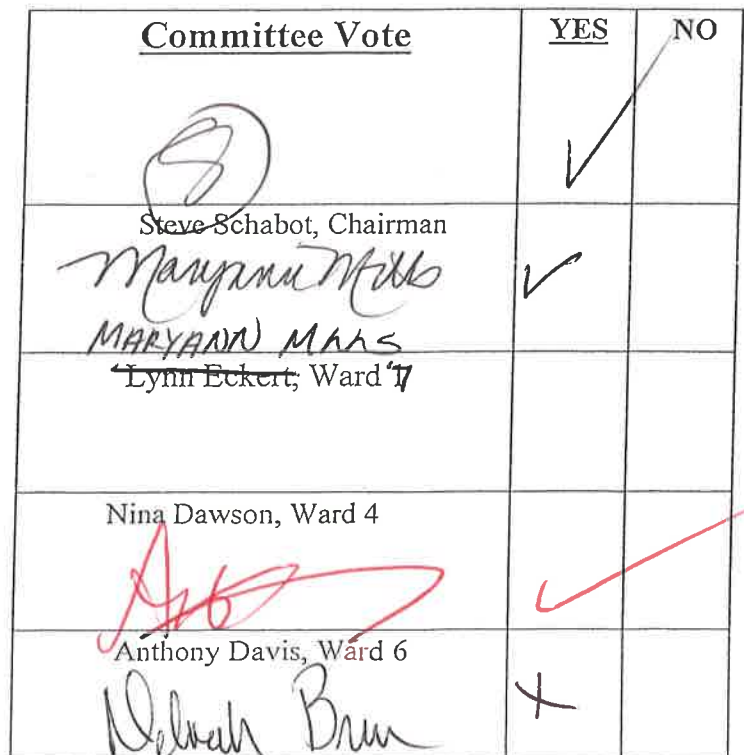 Committee Vote YES NO
Steve Schabot, Chairman
Maryann Mills
MARYANN MILLS
Lynn Eckert, Ward 7
Nina Dawson, Ward 4
Anthony Davis, Ward 6